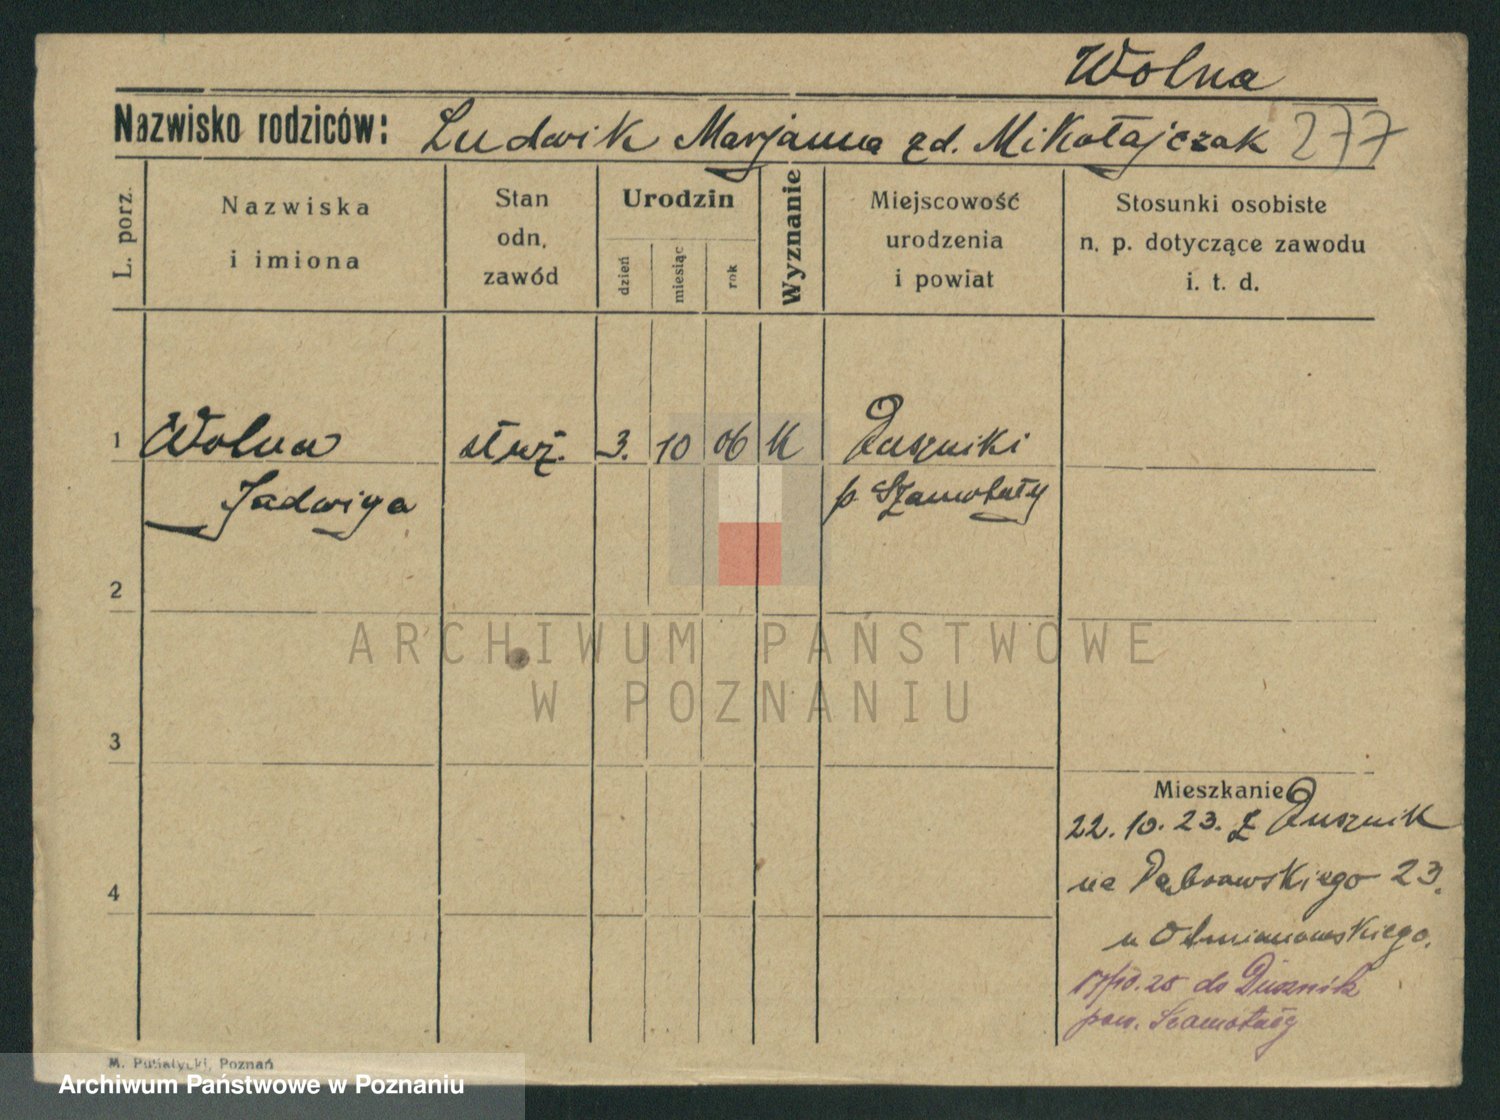 Wolna
Nazwisko rodziców: Ludwik Marjanna zd. Mikołajczak 277
L. porz.
Nazwiska
i imiona
Stan
odn,
zawód
Urodzin
dzień
miesiąc
rok
Wyznanie
Miejscowość
urodzenia
i powiat
Stosunki osobiste
n. p. dotyczące zawodu
i. t. d.
1 Wolna 3. 10 06 K Duszniki
Jadwiga p. Szamotuły
2
ARCHIWUM PAŃSTWOWE
W POZNANIU
3
Mieszkanie
22. 10. 23. z Dusznik
na Dąbrowskiego 23.
4
u Otmianowskiego.
17/10. 25 do Dusznik
pow. Szamotuły
M. Putiatycki, Poznań
Archiwum Państwowe w Poznaniu